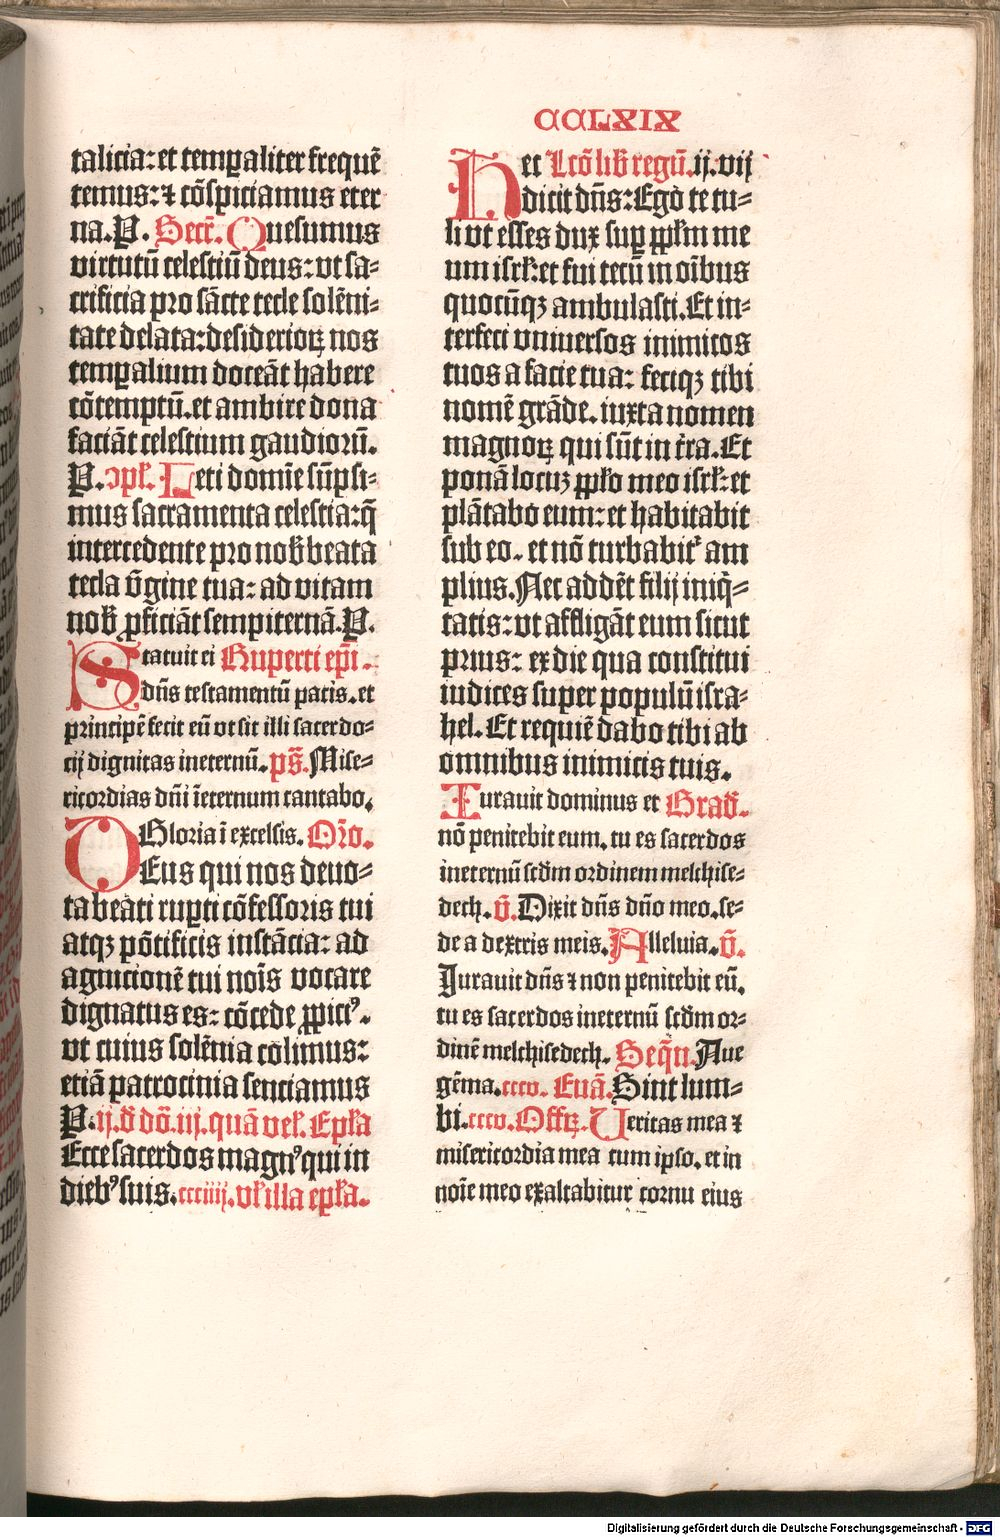 CCLXIX
talicia: et temp̱aliter frequē
temus: ⁊ cōspiciamus eter
na. P. Secr̄. Quesumus
virtutū celestiū deus: vt sa⸗
crificia pro sācte tecle solēni⸗
tate delata: desiderioꝝ nos
temp̱alium doceāt habere
cōtemptū. et ambire dona
faciāt celestium gaudiorū.
P. ↄpl̄. Leti domīe sūpsi⸗
mus sacramenta celestia: q̄
intercedente pro nob̄ beata
tecla v̄gine tua: ad vitam
nob̄ ꝓficiāt sempiternā. P.
Statuit ei Ruperti ep̄i.
dn̄s testamentū pacis. et
principē fecit eū vt sit illi sacerdo⸗
cij dignitas ineternū. ps̄. Mise⸗
ricordias dn̄i īeternum cantabo.
Gloria ī excelsis. Or̄o.
DEus qui nos deuo⸗
ta beati rupti cōfessoris tui
atqꝫ pōtificis instācia: ad
agnicionē tui noīs vocare
dignatus es: cōcede ꝓpicꝰ.
vt cuius solēnia colimus:
etiā patrocinia senciamus
P. ij. d̄ dō. iij. quā vel̄. Epl̄a
Ecce sacerdos magnꝰ qui in
diebꝰ suis. ccciiij. vl̄ illa epl̄a.
Hec Lcō lib̄ regū. ij. vij
dicit dn̄s: Ego te tu⸗
li vt esses dux sup̱ ppl̄m me
um isrl̄: et fui tecū in oībus
quocūqꝫ ambulasti. Et in⸗
terfeci vniuersos inimicos
tuos a facie tua: feciqꝫ tibi
nomē grāde. iuxta nomen
magnoꝝ qui sūt in t̄ra. Et
ponā locuꝫ ppl̄o meo isrl̄: et
plātabo eum: et habitabit
sub eo. et nō turbabit᷑ am
plius. Nec addēt filij iniq̄⸗
tatis: vt affligāt eum sicut
prius: ex die qua constitui
iudices super populū isra⸗
hel. Et requiē dabo tibi ab
omnibus inimicis tuis.
Iurauit dominus et Grad̄.
nō penitebit eum. tu es sacerdos
ineternū scd̄m ordinem melchise⸗
dech. v̄. Dixit dn̄s dn̄o meo. se⸗
de a dextris meis. Alleluia. v̄.
Jurauit dn̄s ⁊ non penitebit eū.
tu es sacerdos ineternū scd̄m or⸗
dinē melchisedech. Seq̄n. Aue
gēma. cccv. Euā. Sint lum⸗
bi. cccv. Offꝝ. Ueritas mea ⁊
misericordia mea cum ipso. et in
noīe meo exaltabitur cornu eius
Digitalisierung gefördert durch die Deutsche Forschungsgemeinschaft - DFG